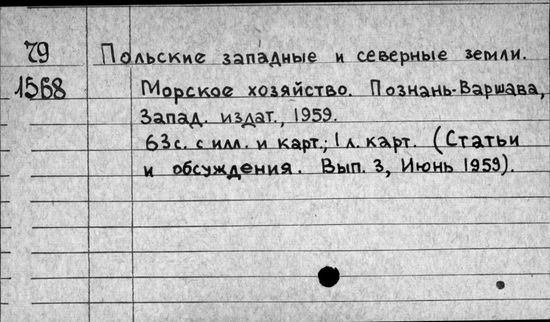 79 Польские западные и северные земли.
1568 Морское хозяйство. Познань-Варшава,
Запад. издат., 1959.
63с. с илл. и карт.; 1 л. карт. (Статьи
и обсуждения. Вып. 3, Июнь 1959).